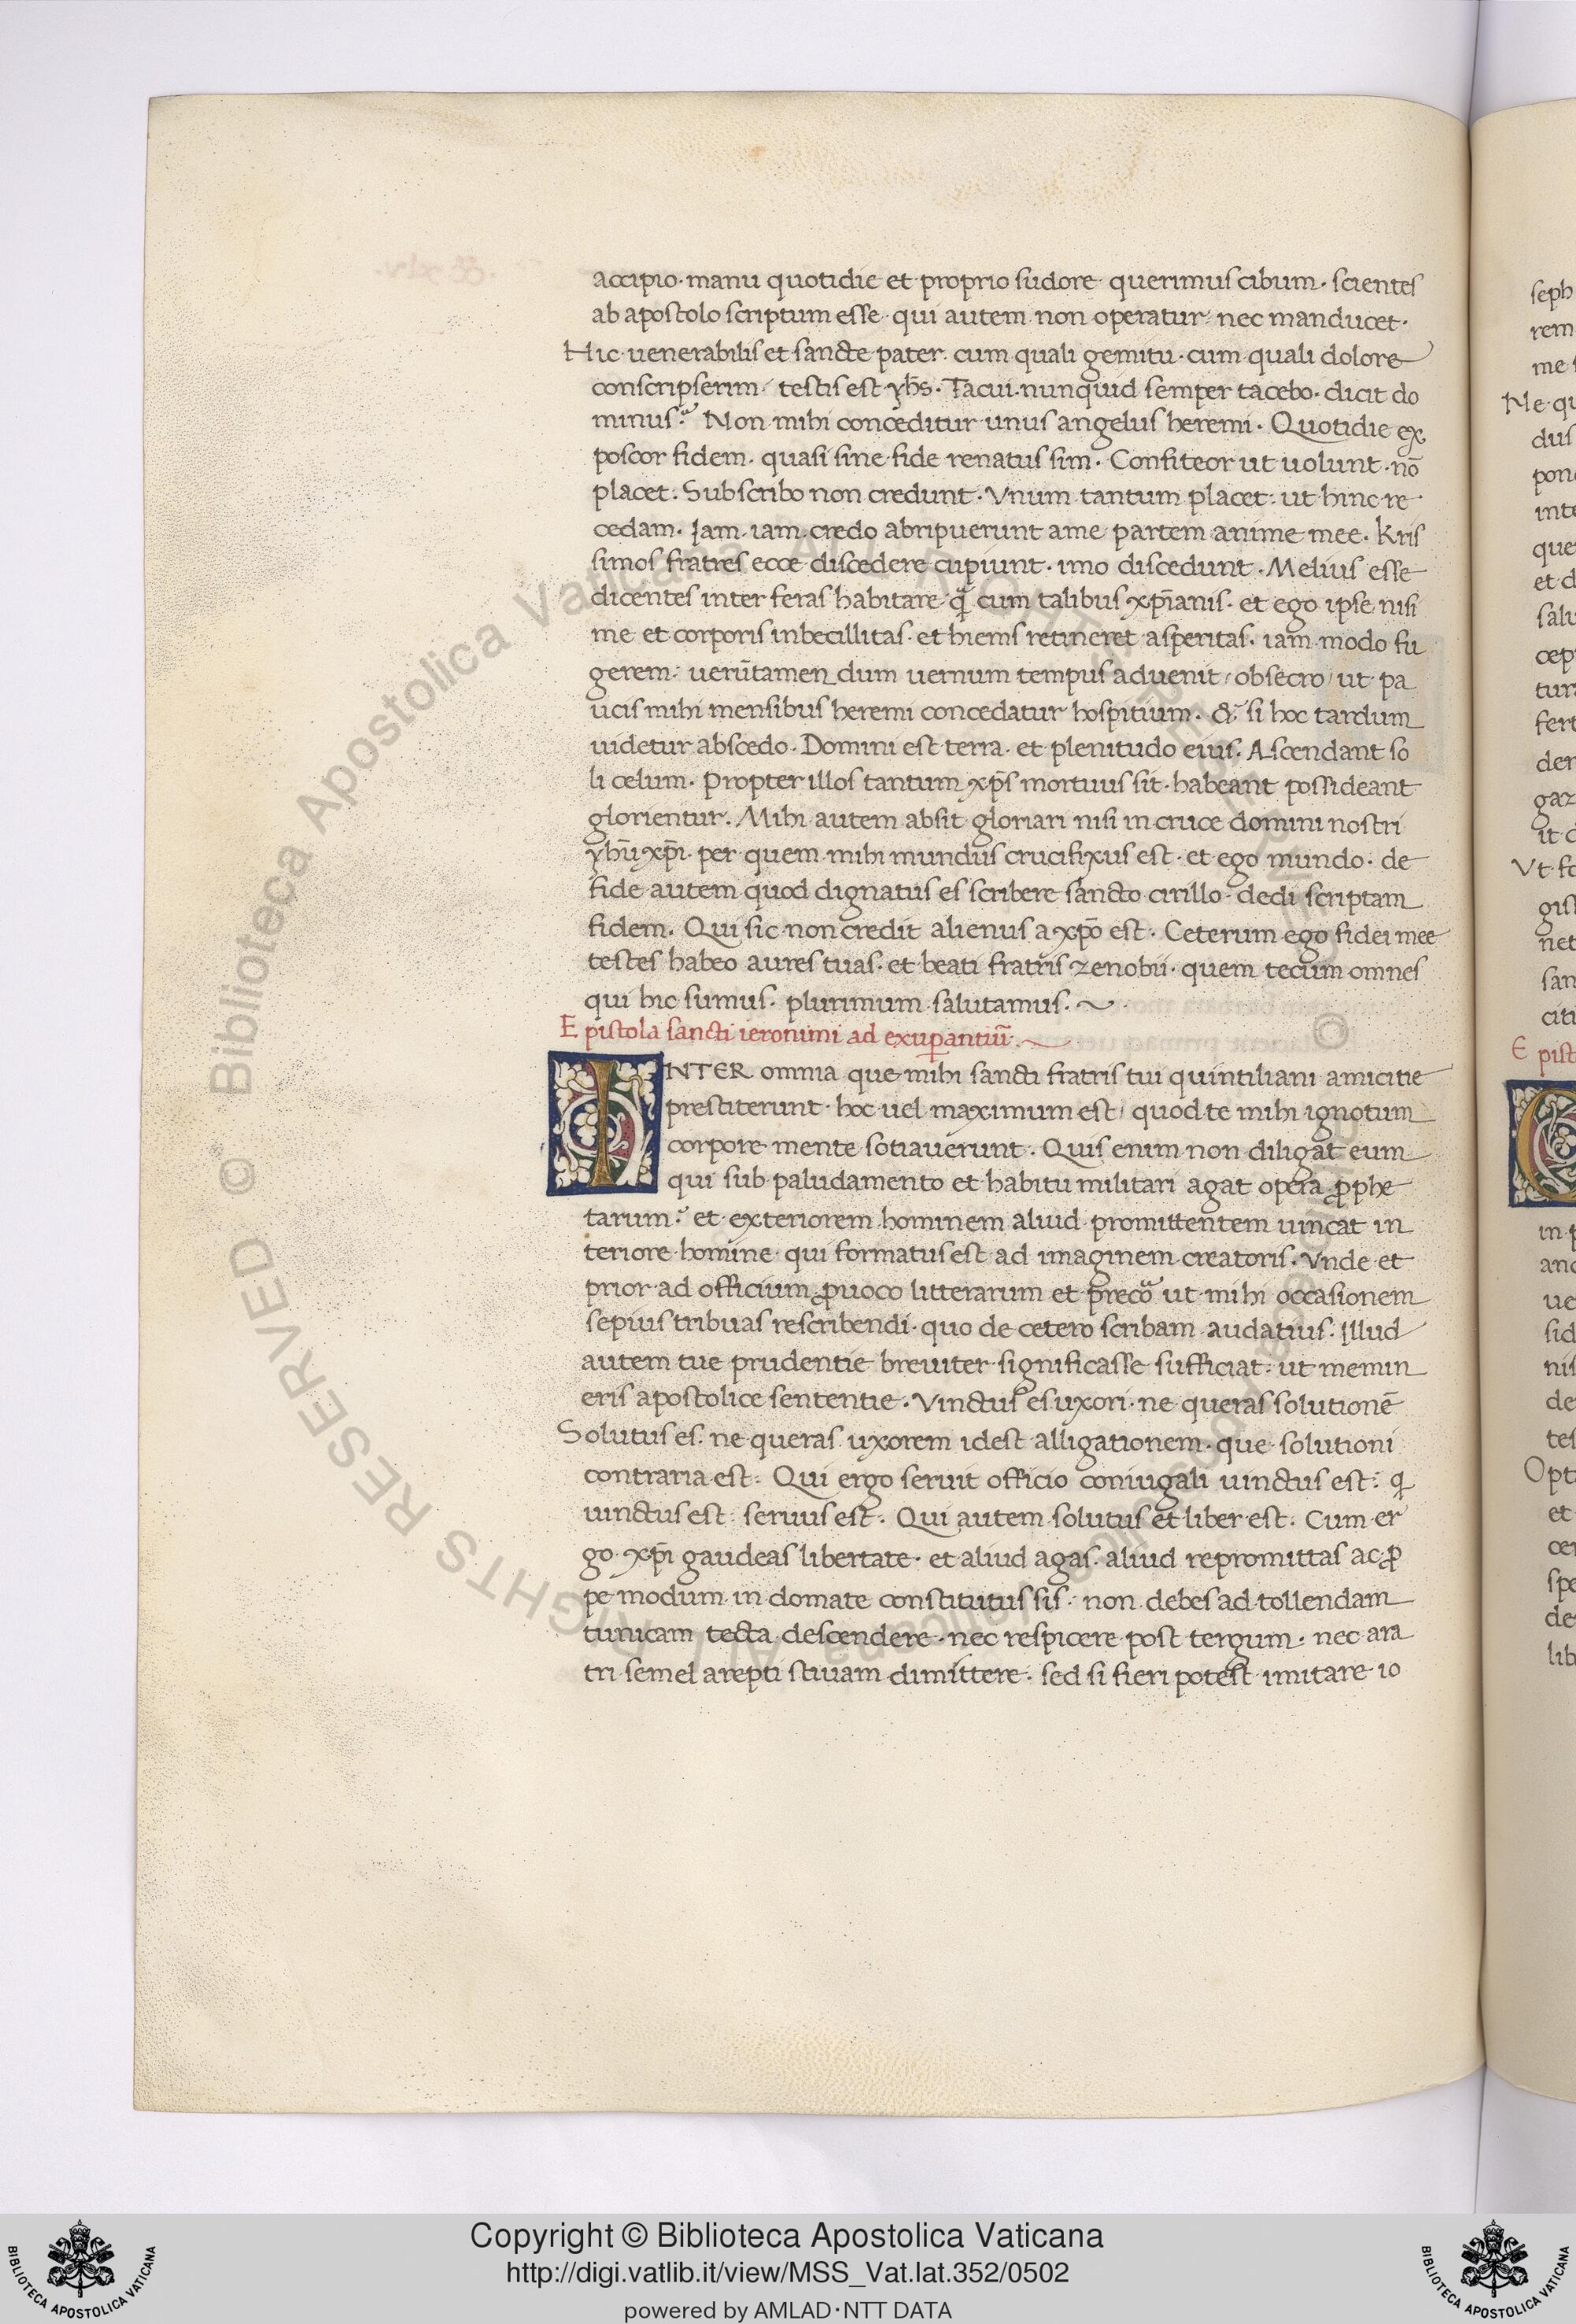 accipio· manu quotidie et proprio sudore querimus cibum· scientes
ab apostolo scriptum esse· qui autem non operatur: nec manducet·
Hic uenerabilis et sancte pater· cum quali gemitu· cum quali dolore
conscripserim testis est yh̄s· Tacui· nunquid semper tacebo· dicit do
minus? Non mihi conceditur unus angelus heremi· Quotidie ex
poscor fidem· quasi sine fide renatus sim· Confiteor ut uolunt· nō
placet: Subscribo non credunt· Vnum tantum placet: ut hinc re
cedam· Iam· iam credo abripuerunt a me partem anime mee· Kris
simos fratres ecce discedere cupiunt· imo discedunt· Melius esse
dicentes inter feras habitare q̄ cum talibus xp̄ianis· et ego ipse nisi
me et corporis inbecillitas· et hiems retineret asperitas· iam modo fu
gerem: uerūtamen dum uernum tempus aduenit/ obsecro/ ut pa
ucis mihi mensibus heremi concedatur hospitium· & si hoc tardum
uidetur abscedo· Domini est terra· et plenitudo eius· Ascendant so
li celum· Propter illos tantum xp̄s mortuus sit· habeant possideant
glorientur· Mihi autem absit gloriari nisi in cruce domini nostri
yhū xp̄i· per quem mihi mundus crucifixus est· et ego mundo· de
fide autem quod dignatus es scribere sancto cirillo· dedi scriptam
fidem· Qui sic non credit alienus a xp̄o est· Ceterum ego fidei mee
testes habeo aures tuas· et beati fratris zenobii· quem tecum omnes
qui hic sumus· plurimum salutamus·
Epistola sancti ieronimi ad exuꝑantiū·
INTER omnia que mihi sancti fratris tui quintiliani amicitie
prestiterunt· hoc uel maximum est/ quod te mihi ignotum
corpore mente sotiauerunt· Quis enim non diligat eum
qui sub paludamento et habitu militari agat opera ꝓphe
tarum? et exteriorem hominem aliud promittentem uincat in
teriore homine· qui formatus est ad imaginem creatoris· Vnde et
prior ad officium ꝓuoco litterarum et p̄recor ut mihi occasionem
sepius tribuas rescribendi· quo de cetero scribam audatius· Illud
autem tue prudentie breuiter significasse sufficiat: ut memin
eris apostolice sententie· Vinctus es uxori· ne queras solutionē
Solutus es· ne queras uxorem idest alligationem· que solutioni
contraria est: Qui ergo seruit officio coniugali uinctus est: q
uinctus est seruus est· Qui autem solutus et liber est· Cum er
go xp̄i gaudeas libertate· et aliud agas· aliud repromittas ac ꝓ
pe modum in domate constitutus sis· non debes ad tollendam
tunicam tecta descendere· nec respicere post tergum· nec ara
tri semel arepti stiuam dimittere· sed si fieri potest imitare io
seph
rem
me
Ne qu
dus
pon
inte
que
et d
salu
cep
tur
fert
der
gaz
it
Vt fo
gis
net
san
citi
Epist
C
in p
anc
ue
sid
nis
de
tes
Opt
et
cer
spe
de
lib
© Biblioteca Apostolica Vaticana ALL RIGHTS RESERVED
© Biblioteca Apostolica Vaticana ALL RIGHTS RESERVED
Copyright © Biblioteca Apostolica Vaticana
http://digi.vatlib.it/view/MSS_Vat.lat.352/0502
powered by AMLAD·NTT DATA
BIBLIOTECA APOSTOLICA VATICANA
BIBLIOTECA APOSTOLICA VATICANA